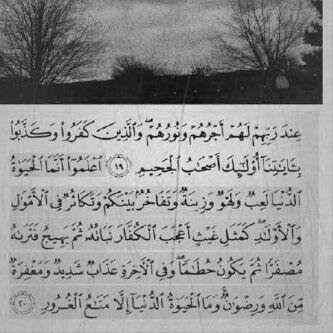 عِندَ رَبِّهِمْ لَهُمْ أَجْرُهُمْ وَنُورُهُمْ ۖ وَالَّذِينَ كَفَرُوا وَكَذَّبُوا
بِـَٔايَٰتِنَآ أُو۟لَٰٓئِكَ أَصْحَٰبُ الْجَحِيمِ ۝١٩ اعْلَمُوٓا أَنَّمَا الْحَيَوٰةُ
الدُّنْيَا لَعِبٌ وَلَهْوٌ وَزِينَةٌ وَتَفَاخُرٌۢ بَيْنَكُمْ وَتَكَاثُرٌ فِى الْأَمْوَٰلِ
وَالْأَوْلَٰدِ ۖ كَمَثَلِ غَيْثٍ أَعْجَبَ الْكُفَّارَ نَبَاتُهُۥ ثُمَّ يَهِيجُ فَتَرَىٰهُ
مُصْفَرًّا ثُمَّ يَكُونُ حُطَٰمًا ۖ وَفِى الْءَاخِرَةِ عَذَابٌ شَدِيدٌ وَمَغْفِرَةٌ
مِّنَ اللَّهِ وَرِضْوَٰنٌ ۚ وَمَا الْحَيَوٰةُ الدُّنْيَآ إِلَّا مَتَٰعُ الْغُرُورِ ۝٢٠